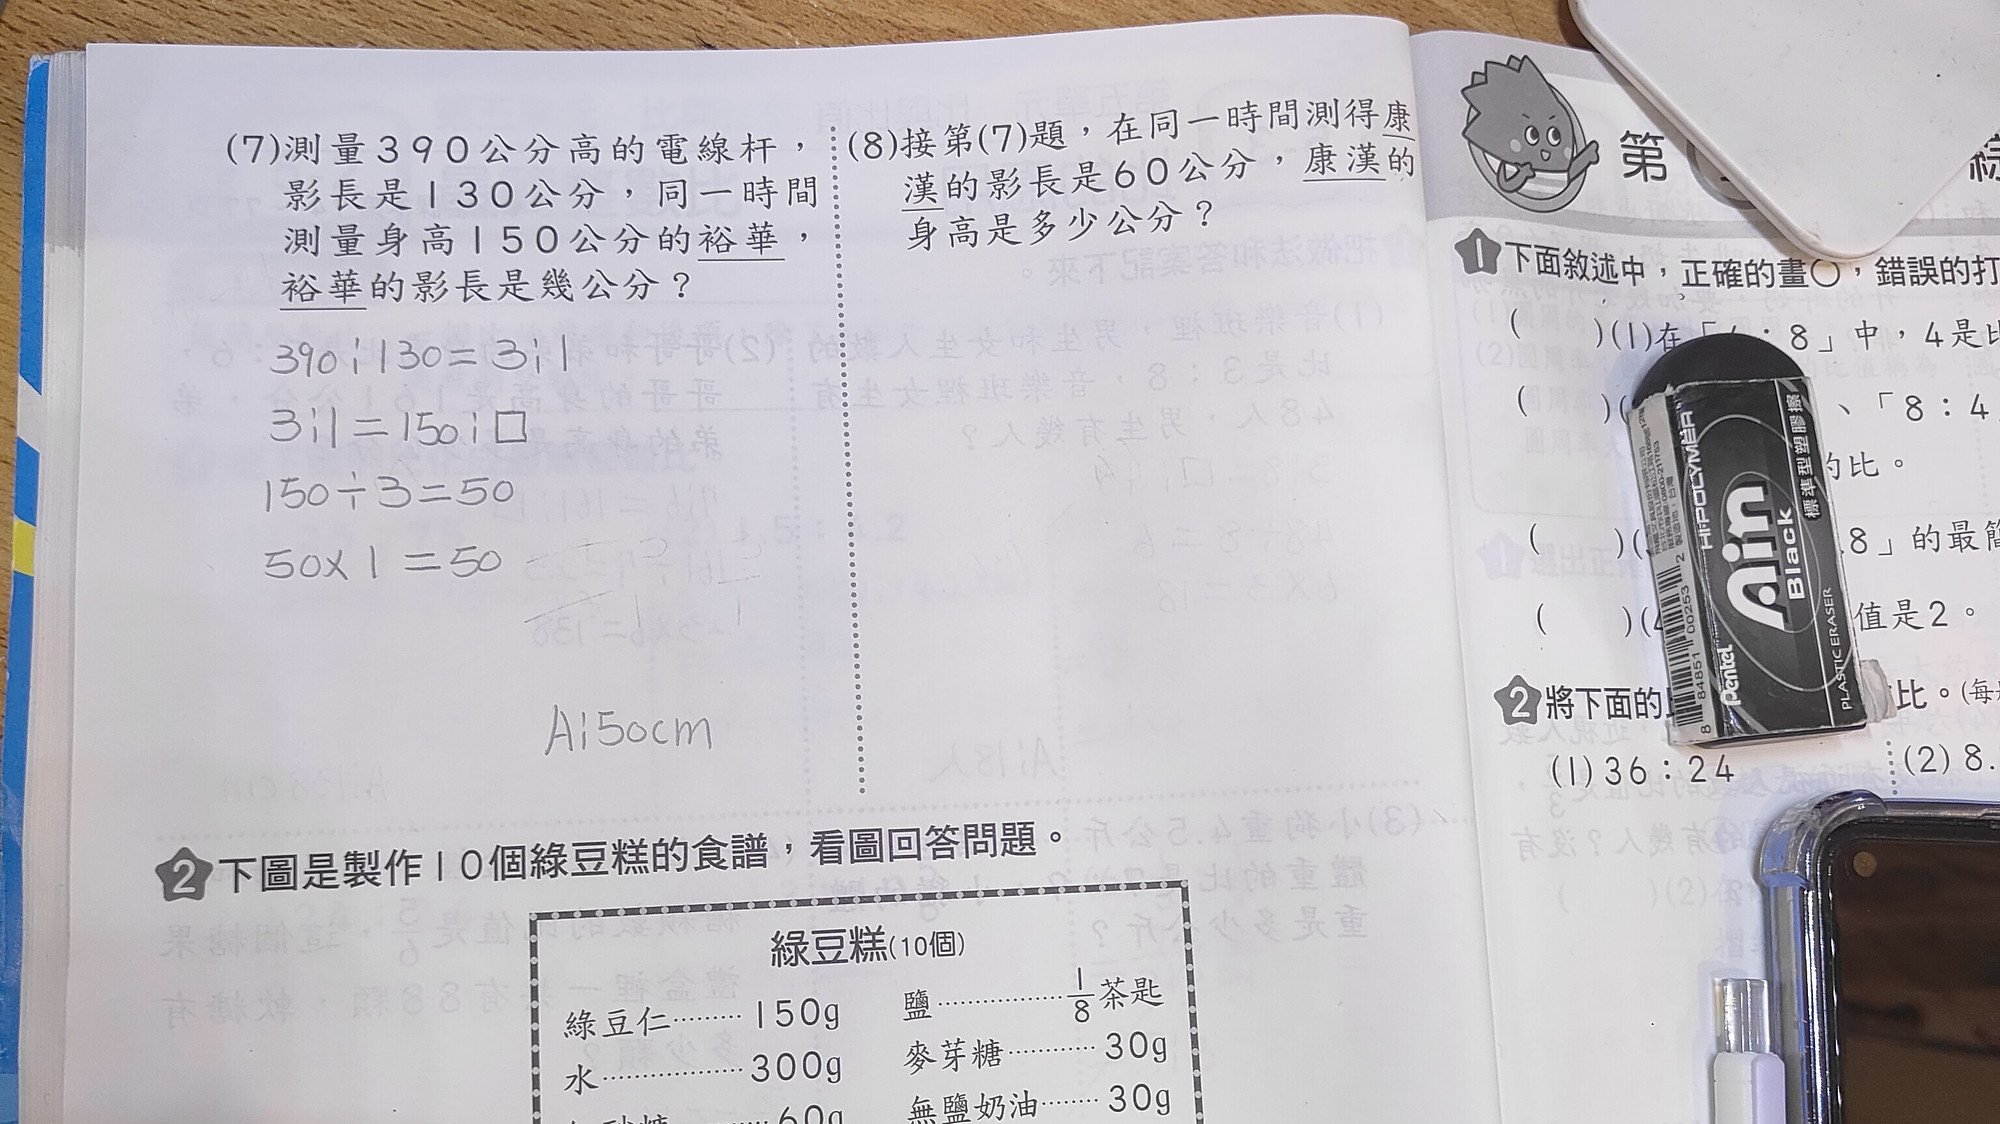 (7)測量390公分高的電線杆，
影長是130公分，同一時間
測量身高150公分的裕華，
裕華的影長是幾公分？
390:130=3:1
3:1=150:□
150÷3=50
50x1=50
A:50cm
(8)接第(7)題，在同一時間測得康
漢的影長是60公分，康漢的
身高是多少公分？
2 下圖是製作10個綠豆糕的食譜，看圖回答問題。
綠豆糕(10個)
綠豆仁………150g
水………………300g
60g
鹽………………1/8茶匙
麥芽糖…………30g
無鹽奶油………30g
第
1 下面敘述中，正確的畫○，錯誤的打
( )(1)在「4：8」中，4是比
( )( 、「8：4
的比。
( )( .8」的最簡
( )(4 值是2。
2 將下面的 比。(每
(1)36：24
(2)8.
Pentel
Ain
Black
HI-POLYMER
標準型塑膠擦
PLASTIC ERASER
8 84851 00253 2